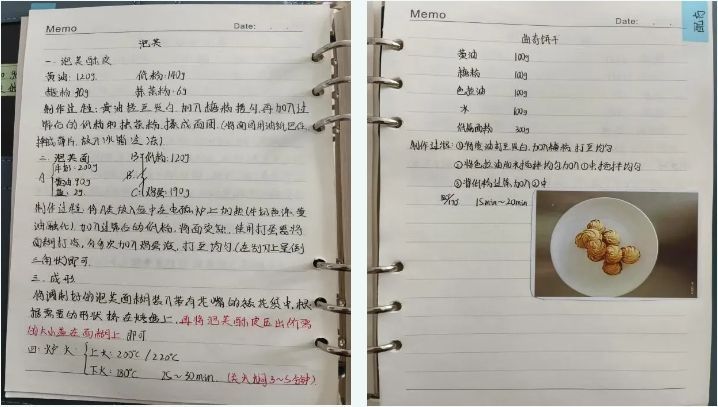 Memo
Date:
泡芙
一. 泡芙酥皮
黄油: 120g 低粉: 140g
糖粉 90g 抹茶粉: 6g
制作过程: 黄油搅至发白, 加入糖粉搅匀, 再加入过
筛后的低粉和抹茶粉, 揉成面团, (将面团用油纸包住,
擀成薄片, 放入冰箱速冻)
二. 泡芙面 B 低粉: 120g
A 牛奶: 200g
黄油 90g
盐: 2g C: 鸡蛋: 190g
制作过程: 将A类放入盆中在电磁炉上加热(牛奶煮沸, 黄
油融化), 加入过筛后的低粉, 将面烫熟, 使用打蛋器将
面糊打散, 分多次加入鸡蛋液, 打至均匀(在刮刀上呈倒
三角状)即可.
三. 成形
将调制好的泡芙面糊装入带有花嘴的裱花袋中, 根
据需要的形状挤在烤盘上, 再将泡芙酥皮压出所需
的大小盖在面糊上 即可
四: 炉火: 上火: 200℃/220℃
下火: 180℃ 25~30min. (关火焖3~5分钟)
Memo
Date:
曲奇饼干
黄油 100g
糖粉 100g
色拉油 100g
水 100g
低筋面粉 300g
制作过程: ①将黄油打至发白, 加入糖粉, 打至均匀
②将色拉油和水搅拌均匀加入①中搅拌均匀
③将低粉过筛, 加入②中
15min~20min